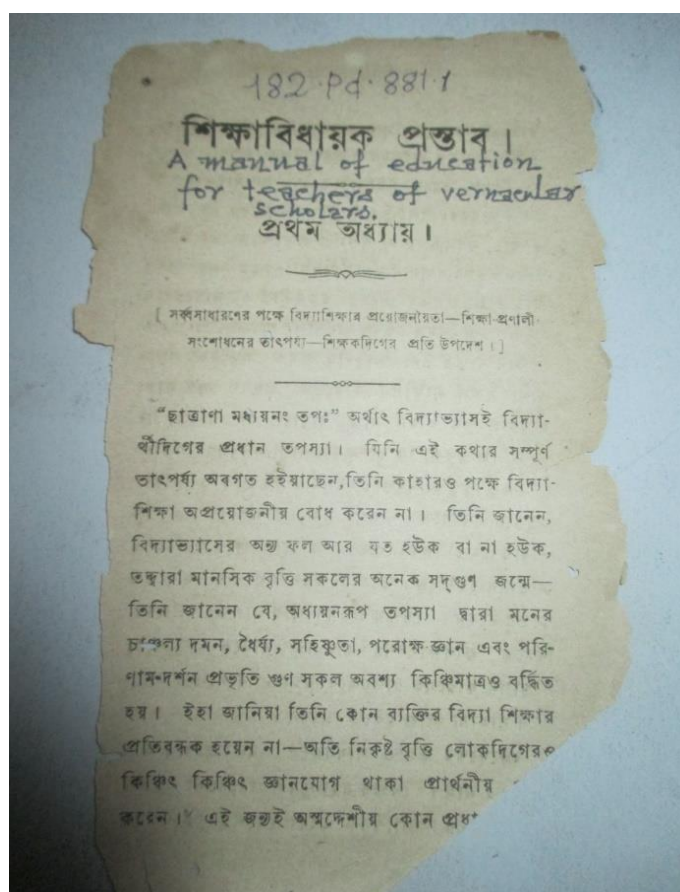 182.Pd.881.1
শিক্ষাবিধায়ক প্রস্তাব।
A manual of education
for teachers of vernacular
scholars.
প্রথম অধ্যায়।
[ সর্ব্বসাধারণের পক্ষে বিদ্যাশিক্ষার প্রয়োজনীয়তা—শিক্ষা-প্রণালী-
সংশোধনের তাৎপর্য্য—শিক্ষকদিগের প্রতি উপদেশ। ]
“ছাত্রাণা মধ্যয়নং তপঃ” অর্থাৎ বিদ্যাভ্যাসই বিদ্যা-
র্থীদিগের প্রধান তপস্যা। যিনি এই কথার সম্পূর্ণ
তাৎপর্য্য অবগত হইয়াছেন, তিনি কাহারও পক্ষে বিদ্যা-
শিক্ষা অপ্রয়োজনীয় বোধ করেন না। তিনি জানেন,
বিদ্যাভ্যাসের অন্য ফল আর যত হউক বা না হউক,
তদ্দ্বারা মানসিক বৃত্তি সকলের অনেক সদ্গুণ জন্মে—
তিনি জানেন যে, অধ্যয়নরূপ তপস্যা দ্বারা মনের
চাঞ্চল্য দমন, ধৈর্য্য, সহিষ্ণুতা, পরোক্ষ জ্ঞান এবং পরি-
ণাম-দর্শন প্রভৃতি গুণ সকল অবশ্য কিঞ্চিন্মাত্রও বর্দ্ধিত
হয়। ইহা জানিয়া তিনি কোন ব্যক্তির বিদ্যা শিক্ষার
প্রতিবন্ধক হয়েন না—অতি নিকৃষ্ট বৃত্তি লোকদিগেরও
কিঞ্চিৎ কিঞ্চিৎ জ্ঞানযোগ থাকা প্রার্থনীয়
করেন। এই জন্যই অস্মদ্দেশীয় কোন